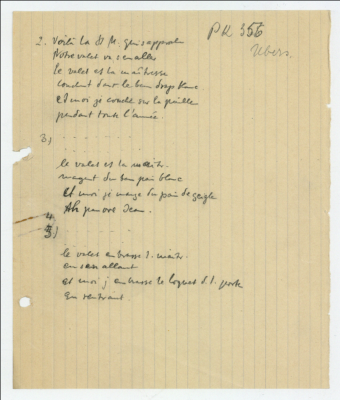 PK 356
Übers.
2. Voilà la St M. qui s'approche
Notre valet va s'en aller
le valet et la maîtresse
couchent dans le beau drap blanc
et moi je couche sur la paille
pendant toute l'année.
3) - - - - - - -
le valet et la maîtr.
mangent du bon pain blanc
et moi je mange du pain de seigle
Ah pauvre Jean.
4) - - - - - - -
le valet embrasse l. maîtr.
en s'en allant
et moi j'embrasse le loquet d. l. porte
en rentrant.